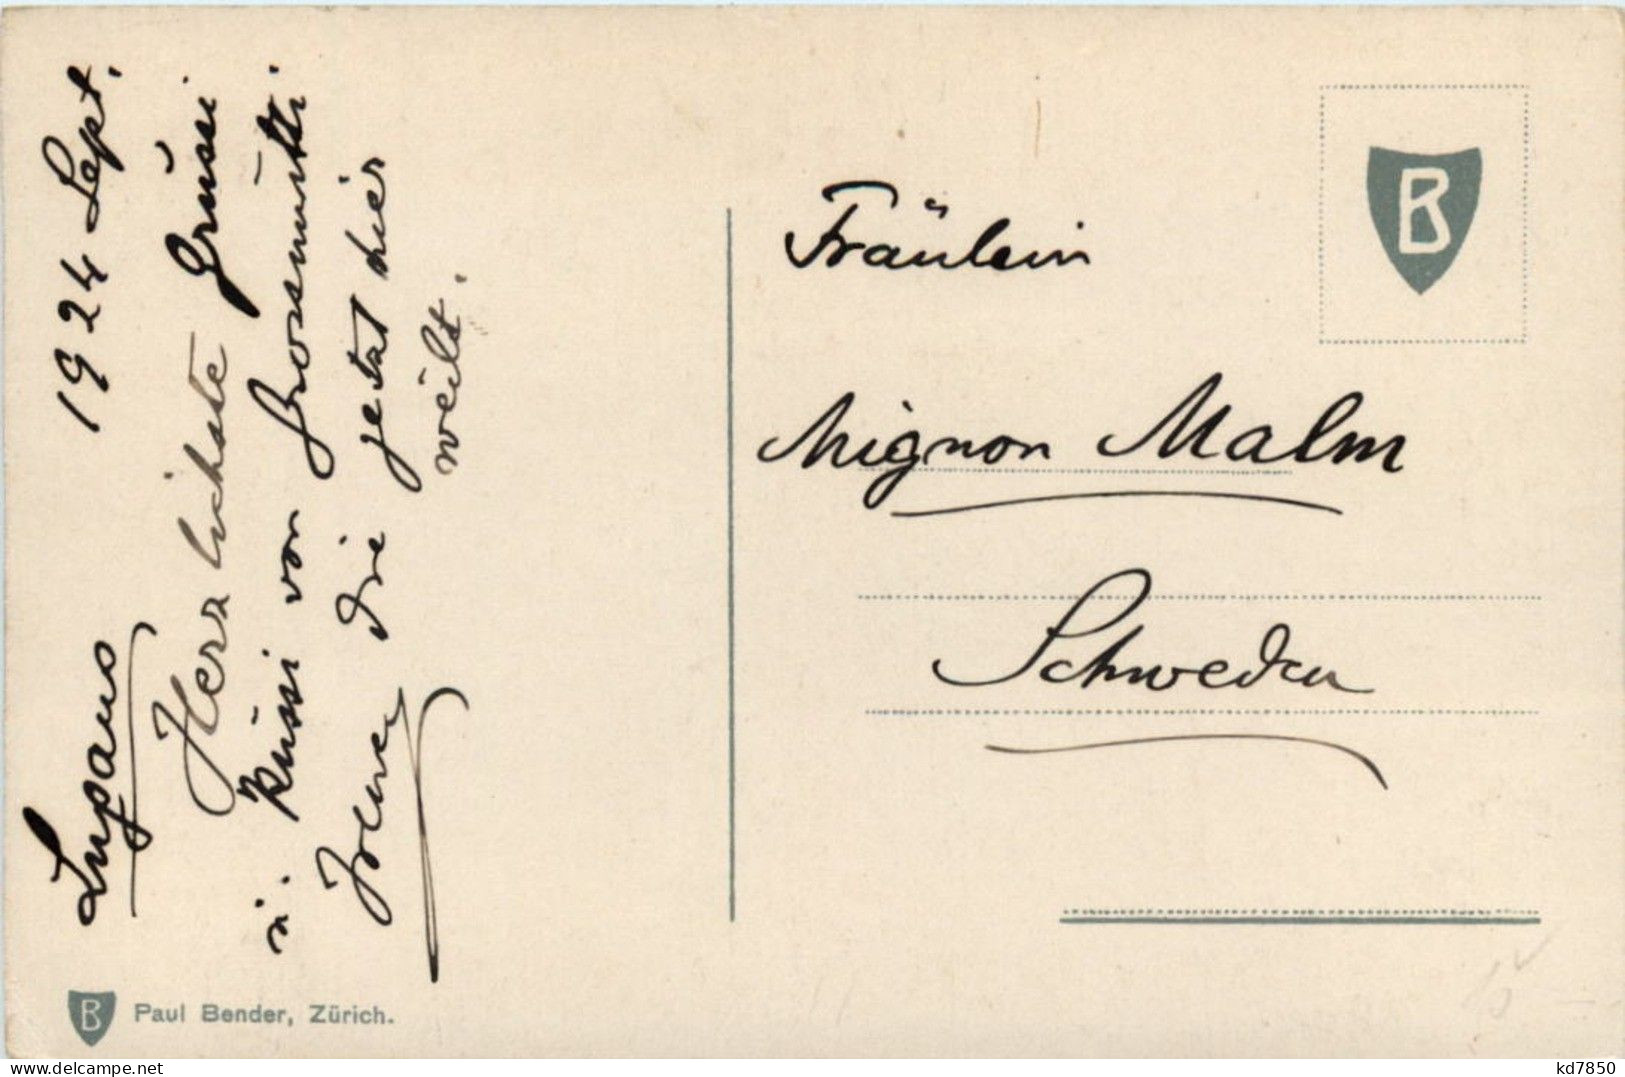 Lugano 1924 Sept.
Herzlichste Grüssi
u. Küssi von Grosmutti.
die jetzt hier
weilt.
Fräulein
Mignon Malm
Schweden
B
B Paul Bender, Zürich.
delcampe.net
kd7850